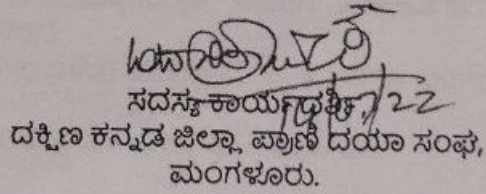 ಸದಸ್ಯ ಕಾರ್ಯದರ್ಶಿ,
ದಕ್ಷಿಣ ಕನ್ನಡ ಜಿಲ್ಲಾ ಪ್ರಾಣಿ ದಯಾ ಸಂಘ,
ಮಂಗಳೂರು.